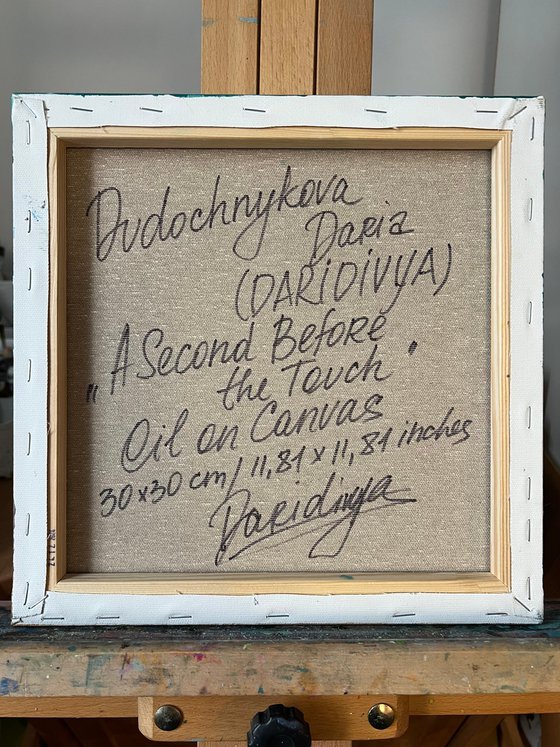 Dudochnykova
Daria
(DARiDiVYA)
„A Second Before
the Touch"
Oil on Canvas
30x30 cm/ 11,81 x 11,81 inches
Daridivya